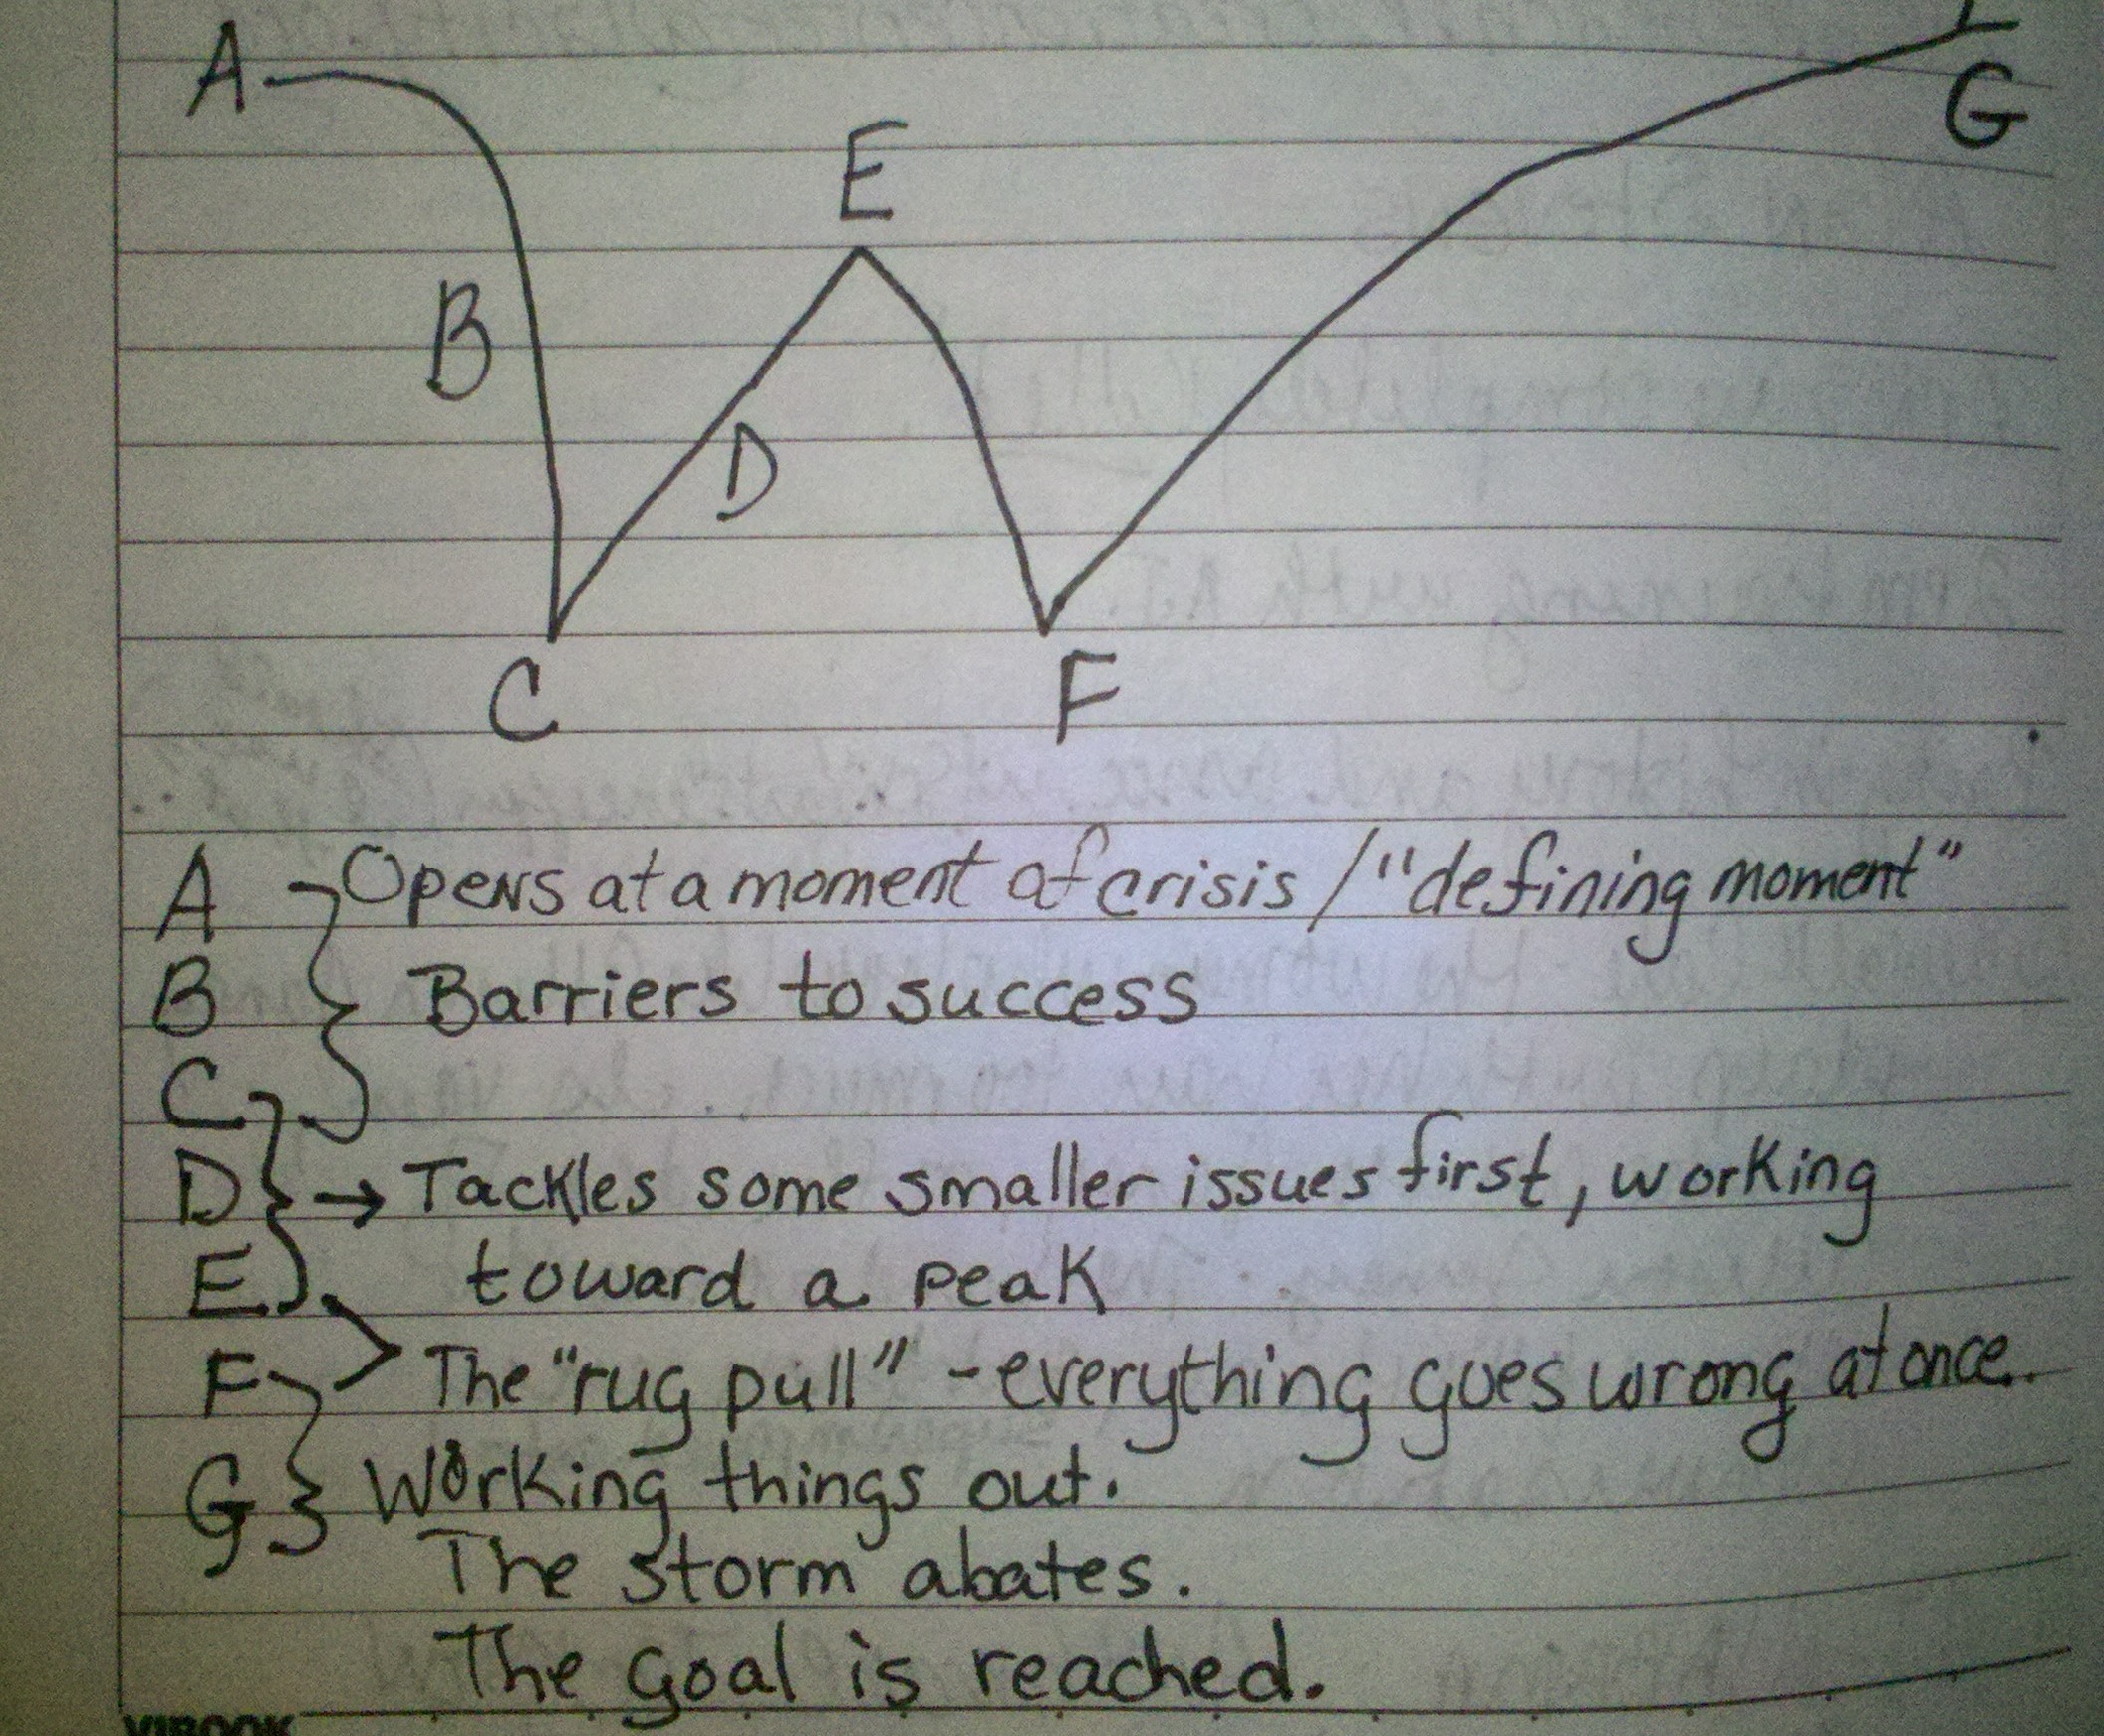 A
E
G
B
D
C
F
A Opens at a moment of crisis / "defining moment"
B Barriers to success
C
D → Tackles some smaller issues first, working
E toward a peak
F The "rug pull" - everything goes wrong at once.
G Working things out.
The storm abates.
The goal is reached.